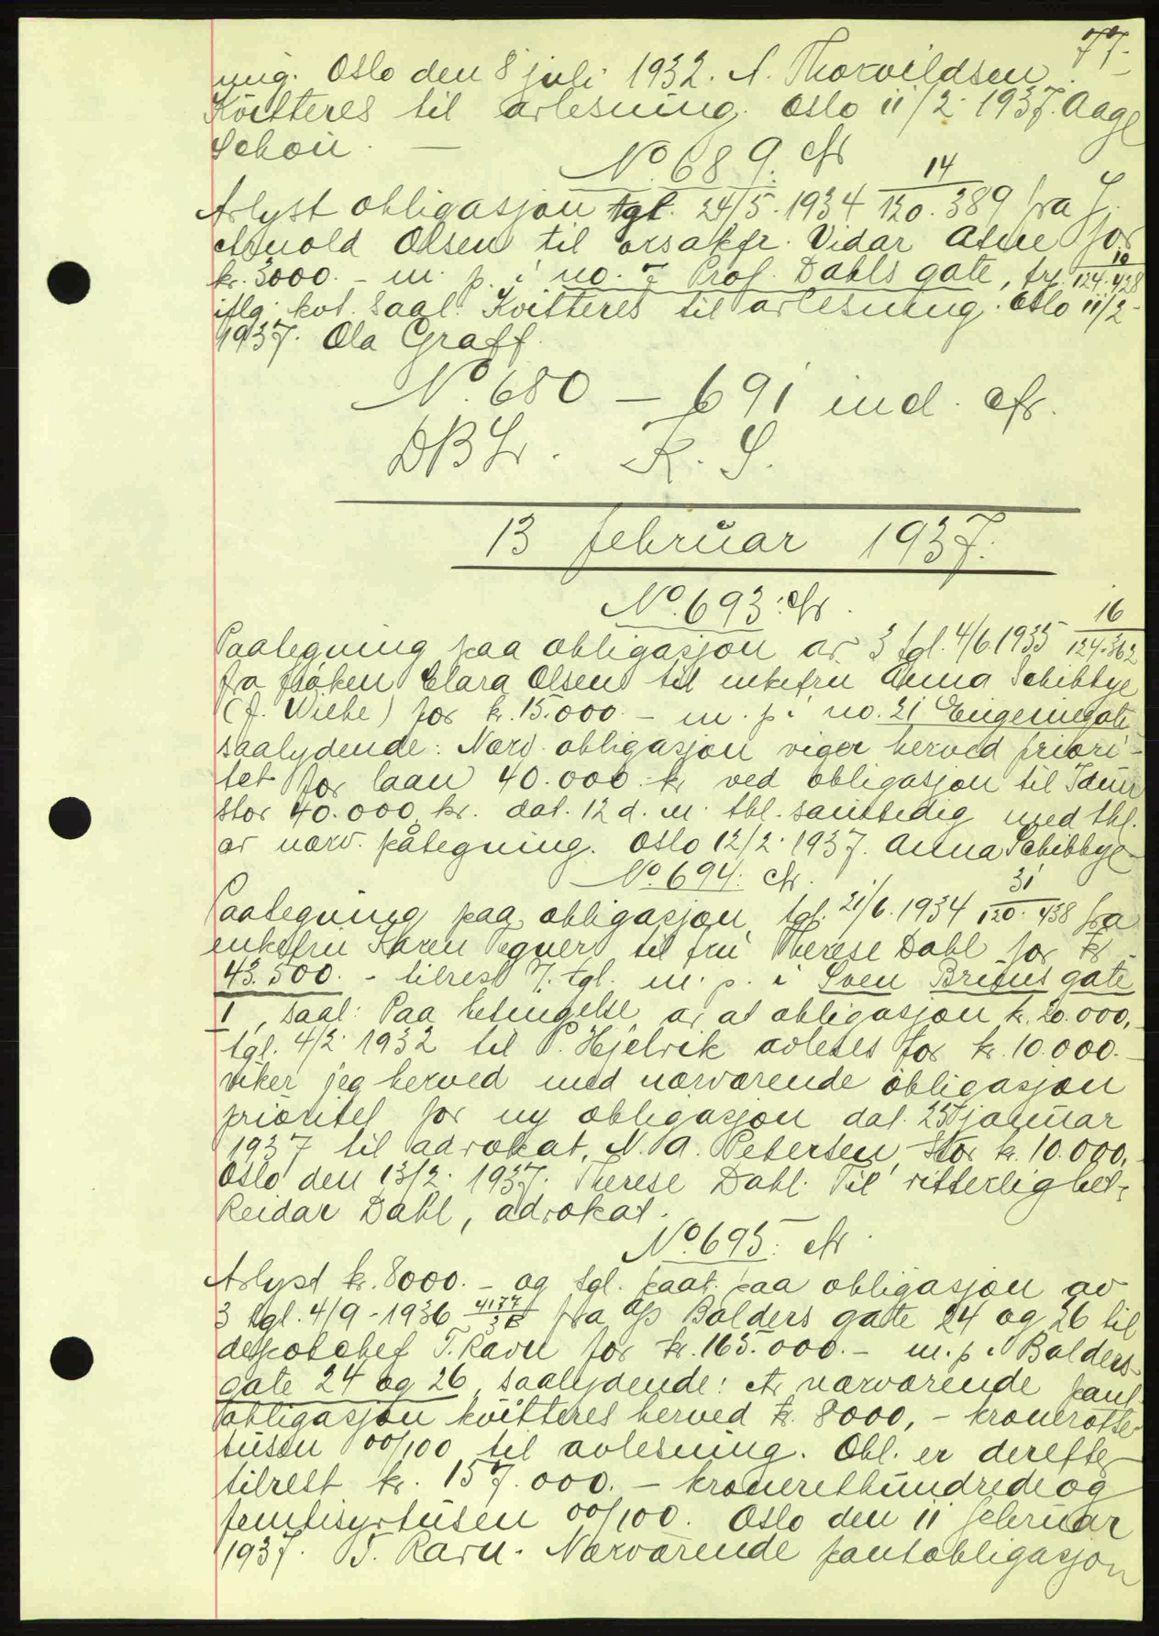 77.
ning. Oslo den 8 juli 1932. N. Thorvildsen.
Kvitteres til avlesning. Oslo 11/2. 1937. Aage
Schou. —
No. 689. Av
Avlyst obligasjon tgl. 24/5. 1934 14/120. 389 fra J.
Arnold Olsen til orsakfr. Vidar Asne for
kr. 3000. – m. p. i no. 7 Prof. Dahls gate, 10/124. 428
iflg. kvt. saal. Kvitteres til avlesning. Oslo 11/2.
1937. Ola Graff.
No. 680 – 691 ind. Av.
DB Lr. K. S.
13 februar 1937.
No. 693. Av.
Paategning paa obligasjon av 3 tgl. 4/6. 1935 16/124. 362
fra frøken Clara Olsen til enkefru Anna Schibbye
(f. Wiebe) for kr. 15.000. – m. p. i no. 21 Eugeniegate
saalydende: Nærv. obligasjon viger herved priori-
tet for laan 40.000. kr ved obligasjon til Idun
stor 40.000 kr. dat. 12 d. m. tbl. samtidig med tbl.
av nærv. påtegning. Oslo 12/2. 1937. Anna Schibbye
No. 694. Av.
Paategning paa obligasjon tgl. 21/6. 1934 31/120. 438 fra
enkefru Karen Tegner til fru Therese Dahl for kr.
43.500. – tilrest 7. tgl. m. p. i Sven Bruns gate
1, saal: Paa betingelse av at obligasjon k. 20.000,–
tgl. 4/2. 1932 til P. Hjelvik avleses for kr. 10.000. –
viker jeg herved med nærværende obligasjon
prioritet for ny obligasjon dat. 25 januar
1937 til advokat, N. A. Petersen, stor k. 10.000,–
Oslo den 13/2. 1937. Therese Dahl. Til vitterlighet:
Reidar Dahl, advokat.
No. 695. Av.
Avlyst kr. 8000. – og tgl. paat. paa obligasjon av
3 tgl. 4/9. 1936 4177/3B fra A/S Balders gate 24 og 26 til
depotchef T. Ravn for kr. 165.000. – m. p. i Balders
gate 24 og 26, saalydende: Av nærværende pant-
obligasjon kvitteres herved kr. 8000, – kroneråtte-
tusen 00/100 til avlesning. Obl. er derefter
tilrest kr. 157.000. – kronerethundredeog
femtisyvtusen 00/100. Oslo den 11 februar
1937. T. Ravn. Nærværende pantobligasjon